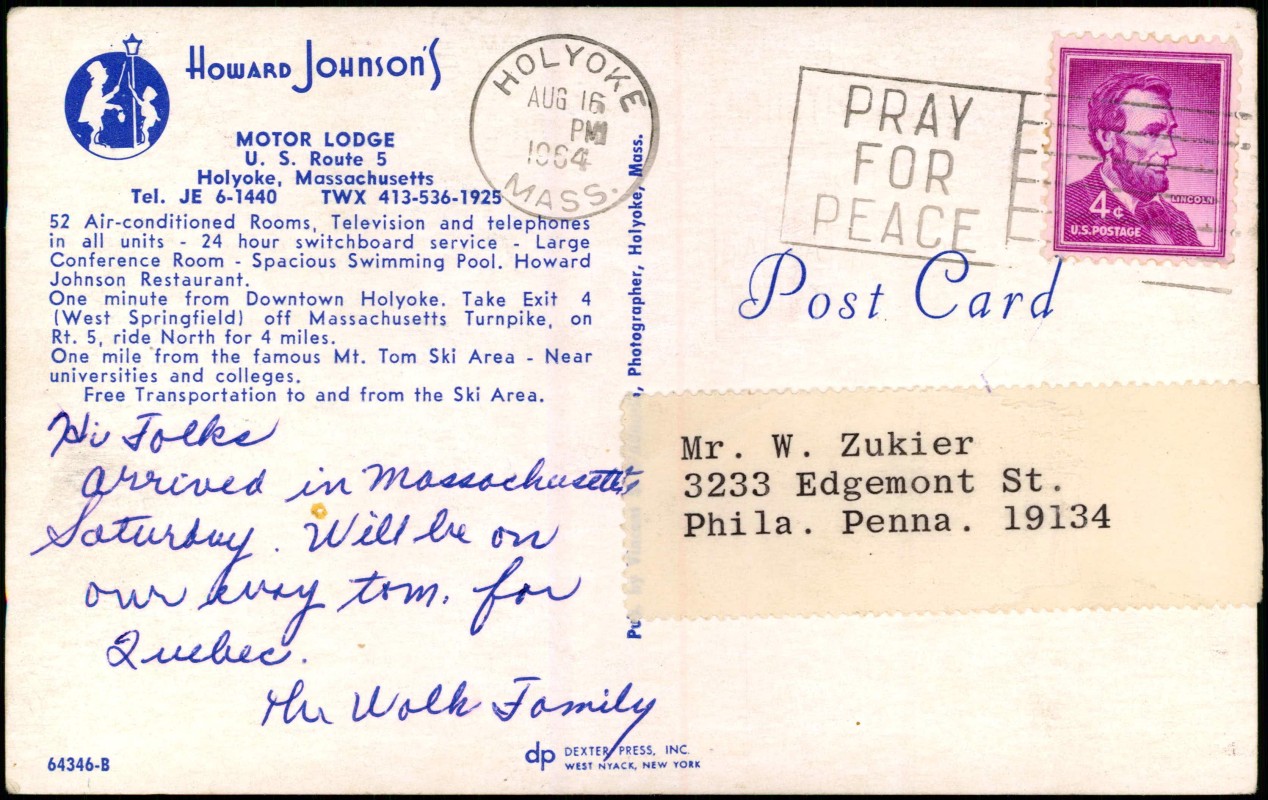 Howard Johnson's
MOTOR LODGE
U. S. Route 5
Holyoke, Massachusetts
Tel. JE 6-1440 TWX 413-536-1925
52 Air-conditioned Rooms, Television and telephones
in all units - 24 hour switchboard service - Large
Conference Room - Spacious Swimming Pool. Howard
Johnson Restaurant.
One minute from Downtown Holyoke. Take Exit 4
(West Springfield) off Massachusetts Turnpike, on
Rt. 5, ride North for 4 miles.
One mile from the famous Mt. Tom Ski Area - Near
universities and colleges.
Free Transportation to and from the Ski Area.
Hi Folks
arrived in Massachusetts
Saturday. Will be on
our way tom. for
Quebec.
The Wolk Family
64346-B
dp DEXTER PRESS, INC.
WEST NYACK, NEW YORK
Pub. by Vincent Photographer, Holyoke, Mass.
HOLYOKE
AUG 16
PM
1964
MASS.
PRAY
FOR
PEACE
LINCOLN
4¢
U.S. POSTAGE
Post Card
Mr. W. Zukier
3233 Edgemont St.
Phila. Penna. 19134